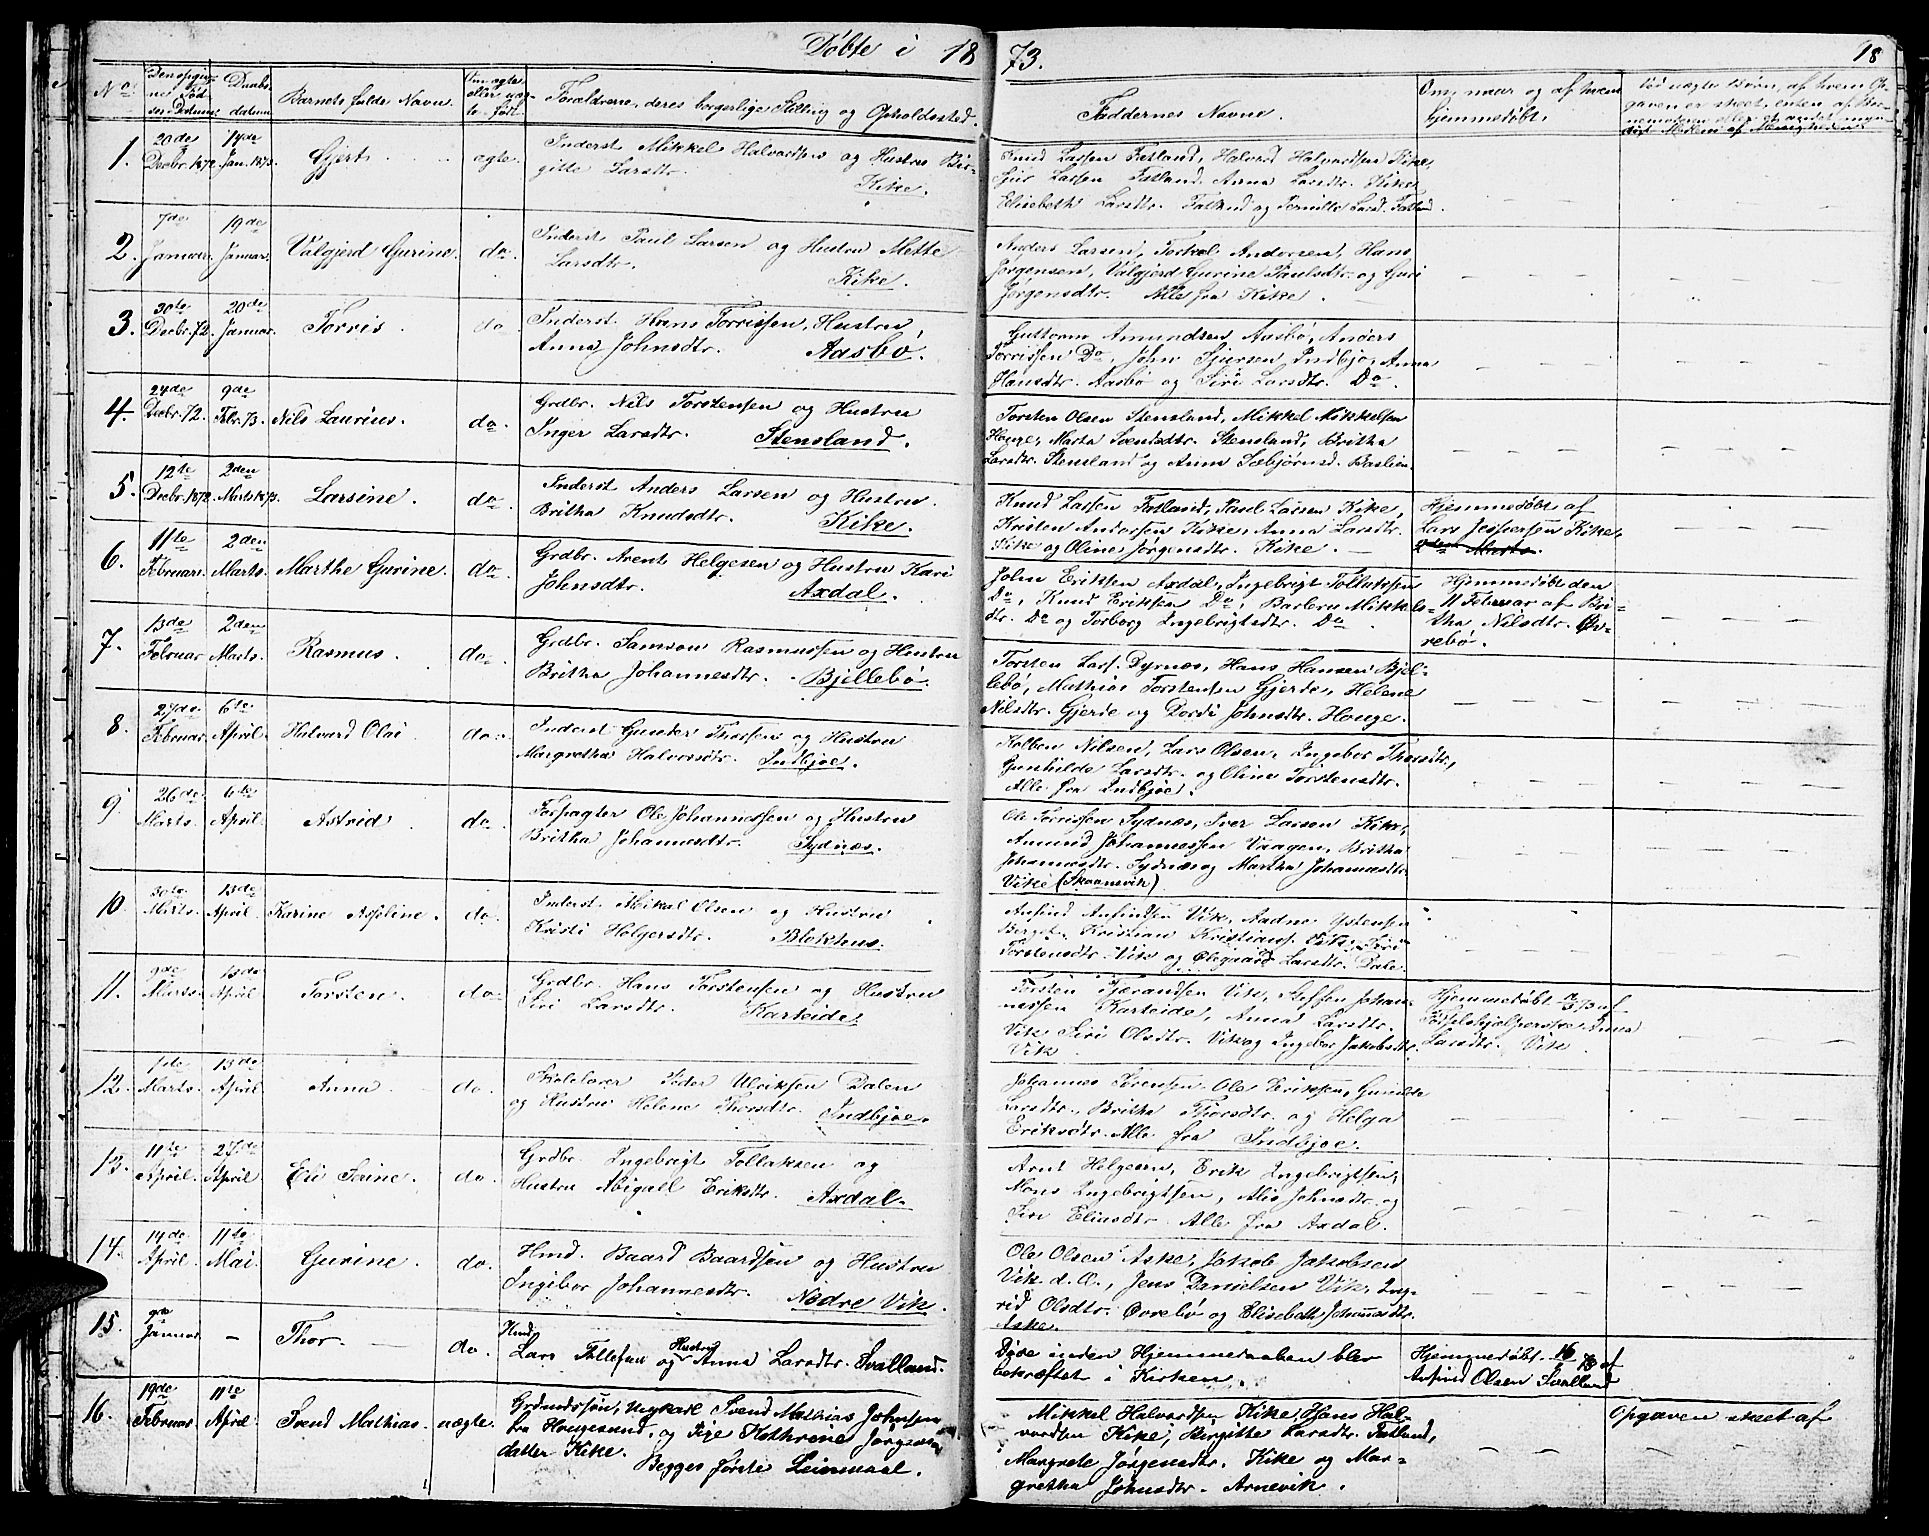 Döbte i 1873.
18
No.
Den opgivne Födselsdatum
Daabsdatum
Barnets fulde Navn
Om ægte eller uægte födt
Forældrene, deres borgerlige Stilling og Opholdssted.
Faddernes Navne.
Om, naar og af hvem hjemmedöbt.
Ved uægte Börn, af hvem Opgaven er skeet, enten af Barnemoderen eller et andet myndigt Medlem af Menigheden
1. 20de Decbr. 1872 19de Jan. 1873. Gjert ægte.
Inderst Mikkel Halvardsen og Hustru Bir-
gitte Larsdtr. Kike.
Knud Larsen Fatland, Halvard Halvardsen Kike,
Sjur Larsen Fatland, Anna Larsdtr. Kike,
Elisebeth Larsdtr. Fatland og Pernille Larsd. Fatland.
2. 7de Januar. 19de Januar. Valgjerd Gurine. do.
Inderst Paul Larsen og Hustru Mette
Larsdtr. Kike.
Anders Larsen, Torkel Andersen, Hans
Jörgensen, Valgjerd Gurine Paulsdtr. og Guri
Jörgensdtr. Alle fra Kike.
3. 30te Decbr. 72. 20de Januar. Torris. do
Inderst. Hans Torrissen, Hustru,
Anna Johnsdtr. Aasbö.
Guttorm Amundsen Aasbö, Anders
Torrissen Do, John Sjursen Indbjo, Anna
Hansdtr. Aasbö og Siri Larsdtr. Do.
4. 24de Decbr. 72. 9de Febr. 73. Nils Laurius. do.
Grdbr. Nils Torstensen og Hustru
Inger Larsdtr. Stensland.
Torsten Olsen Stensland, Mikkel Mikkelsen
Houge, Marta Svendsdtr. Stensland, Britha
Larsdtr. Stensland og Anna Sæbjörnsd.
5. 12te Decbr. 1872. 2den Marts 1873. Larsine. do.
Inderst Anders Larsen og Hustru
Britha Knudsdtr. Kike.
Knud Larsen Fatland, Paul Larsen Kike,
Kristen Andersen Kike, Anna Larsdtr.
Kike og Oline Jörgensdtr. Kike.
Hjemmedöbt af
Lars Jespersen Kike,
2den Marts.
6. 11te Februar. 2den Marts. Marthe Gurine. do.
Grdbr. Arent Helgesen og Hustru Kari
Johnsdtr. Axdal.
John Eriksen Axdal, Ingebrigt Tollaksen
Do, Knud Eriksen Do, Barbru Mikkels-
dtr. Do og Torborg Ingebrigtsdtr. Do
Hjemmedöbt den
11 Februar af Bri-
tha Nilsdtr. Öv-
rebö.
7. 13de Februar 2den Marts. Rasmus. do.
Grdbr. Samson Rasmussen og Hustru
Britha Johannesdtr. Bjellebö.
Torsten Lars. Dyrnes, Hans Hansen Bjel-
lebö, Mathias Torstensen Gjerde, Helene
Nilsdtr. Gjerde og Dordi Johnsdtr. Houge.
8. 27de Februar. 6te April. Halvard Olai do.
Inderst Gunder Thorsen og Hustru
Margretha Halvorsdtr. Indbjoe.
Kolben Nilsen, Lars Olsen, Ingebor Thorsdtr,
Gunhilde Larsdtr. og Oline Torstensdtr.
Alle fra Indbjoe.
9. 26de Marts. 6te April. Astrid do.
Forpagter Ole Johannessen og Hustru
Britha Johannesdtr. Sydnæs.
Ole Torrissen Sydnæs, Iver Larsen Kike,
Amund Johannessen Vaagen, Britha
Johannesdtr. Sydnæs og Martha Johannesdtr
Vike (Skaanevik)
10 30te Marts. 13de April. Karine Asseline. do.
Inderst. Mikal Olsen og Hustru
Kristi Holgersdtr. Blokhus.
Anfind Anfindsen Vik, Aadne Ystensen
Berget, Kristian Kristians. Vik, Siri
Torstensdtr. Vik og Olegaard Larsdtr. Dale.
11. 9de Marts. 13de April Torsten. do.
Grdbr. Hans Torstensen og Hustru
Siri Larsdtr. Karteide.
Torsten Tjerandsen Vik, Steffen Johan-
nessen Karteide, Anna Larsdtr.
Vik, Siri Olsdtr. Vik og Ingebor Jakobsdtr.
Vik
Hjemmedöbt 73 af
Födselshjælperske Anna
Larsdtr. Vik
12. 1de Marts. 13de April Anna. do.
Skolelærer Peder Ulriksen Dalen
og Hustru Helene Thorsdtr. Indbjoe.
Johannes Sörensen Ole Eriksen, Gunilde
Larsdtr., Britha Thorsdtr. og Helga
Eriksdtr. Alle fra Indbjoe.
13. 11te April. 27de April Eli Serine. do.
Grdbr. Ingebrigt Tollaksen og
Hustru Abigall Eriksdtr. Axdal.
Arnt Helgesen, Erik Ingebrigtsen,
Mons Ingebrigtsen, Alis Johnsdtr. og
Siri Eliasdtr. Alle fra Axdal.
14. 14de April. 11te Mai. Gurine. do.
Hmd. Baard Baardsen og Hustru
Ingibor Johannesdtr. Nedre Vik.
Ole Olsen Aske, Jakob Jakobsen
Vik d. Æ., Jens Danielsen Vik, Ing-
rid Olsdtr. Övrebö og Elisebeth Johannesdtr.
Aske.
15. 9de Januar. – Thor – do.
Hmd. Lars Tollefsen og Hustru Anna Larsdtr. Svalland.
Döde inden Hjemmedaaben blev
bekræftet i Kirken.
Hjemmedöbt 73 af
Anfind Olsen Svalland
16. 19de Februar 11te April Svend Mathias. uægte.
Grdmandssön, Ungkarl Svend Mathias Johnsen
fra Haugesund, og Pige Kathrine Jörgens-
datter Kike. Begges förste Leiermaal.
Mikkel Halvardsen Kike, Hans Hal-
vardsen Kike, Birgitte Larsdtr. Fatland,
Margrete Jörgensdtr. Kike og Mar-
gretha Johnsdtr. Arnevik.
Opgaven skeet af